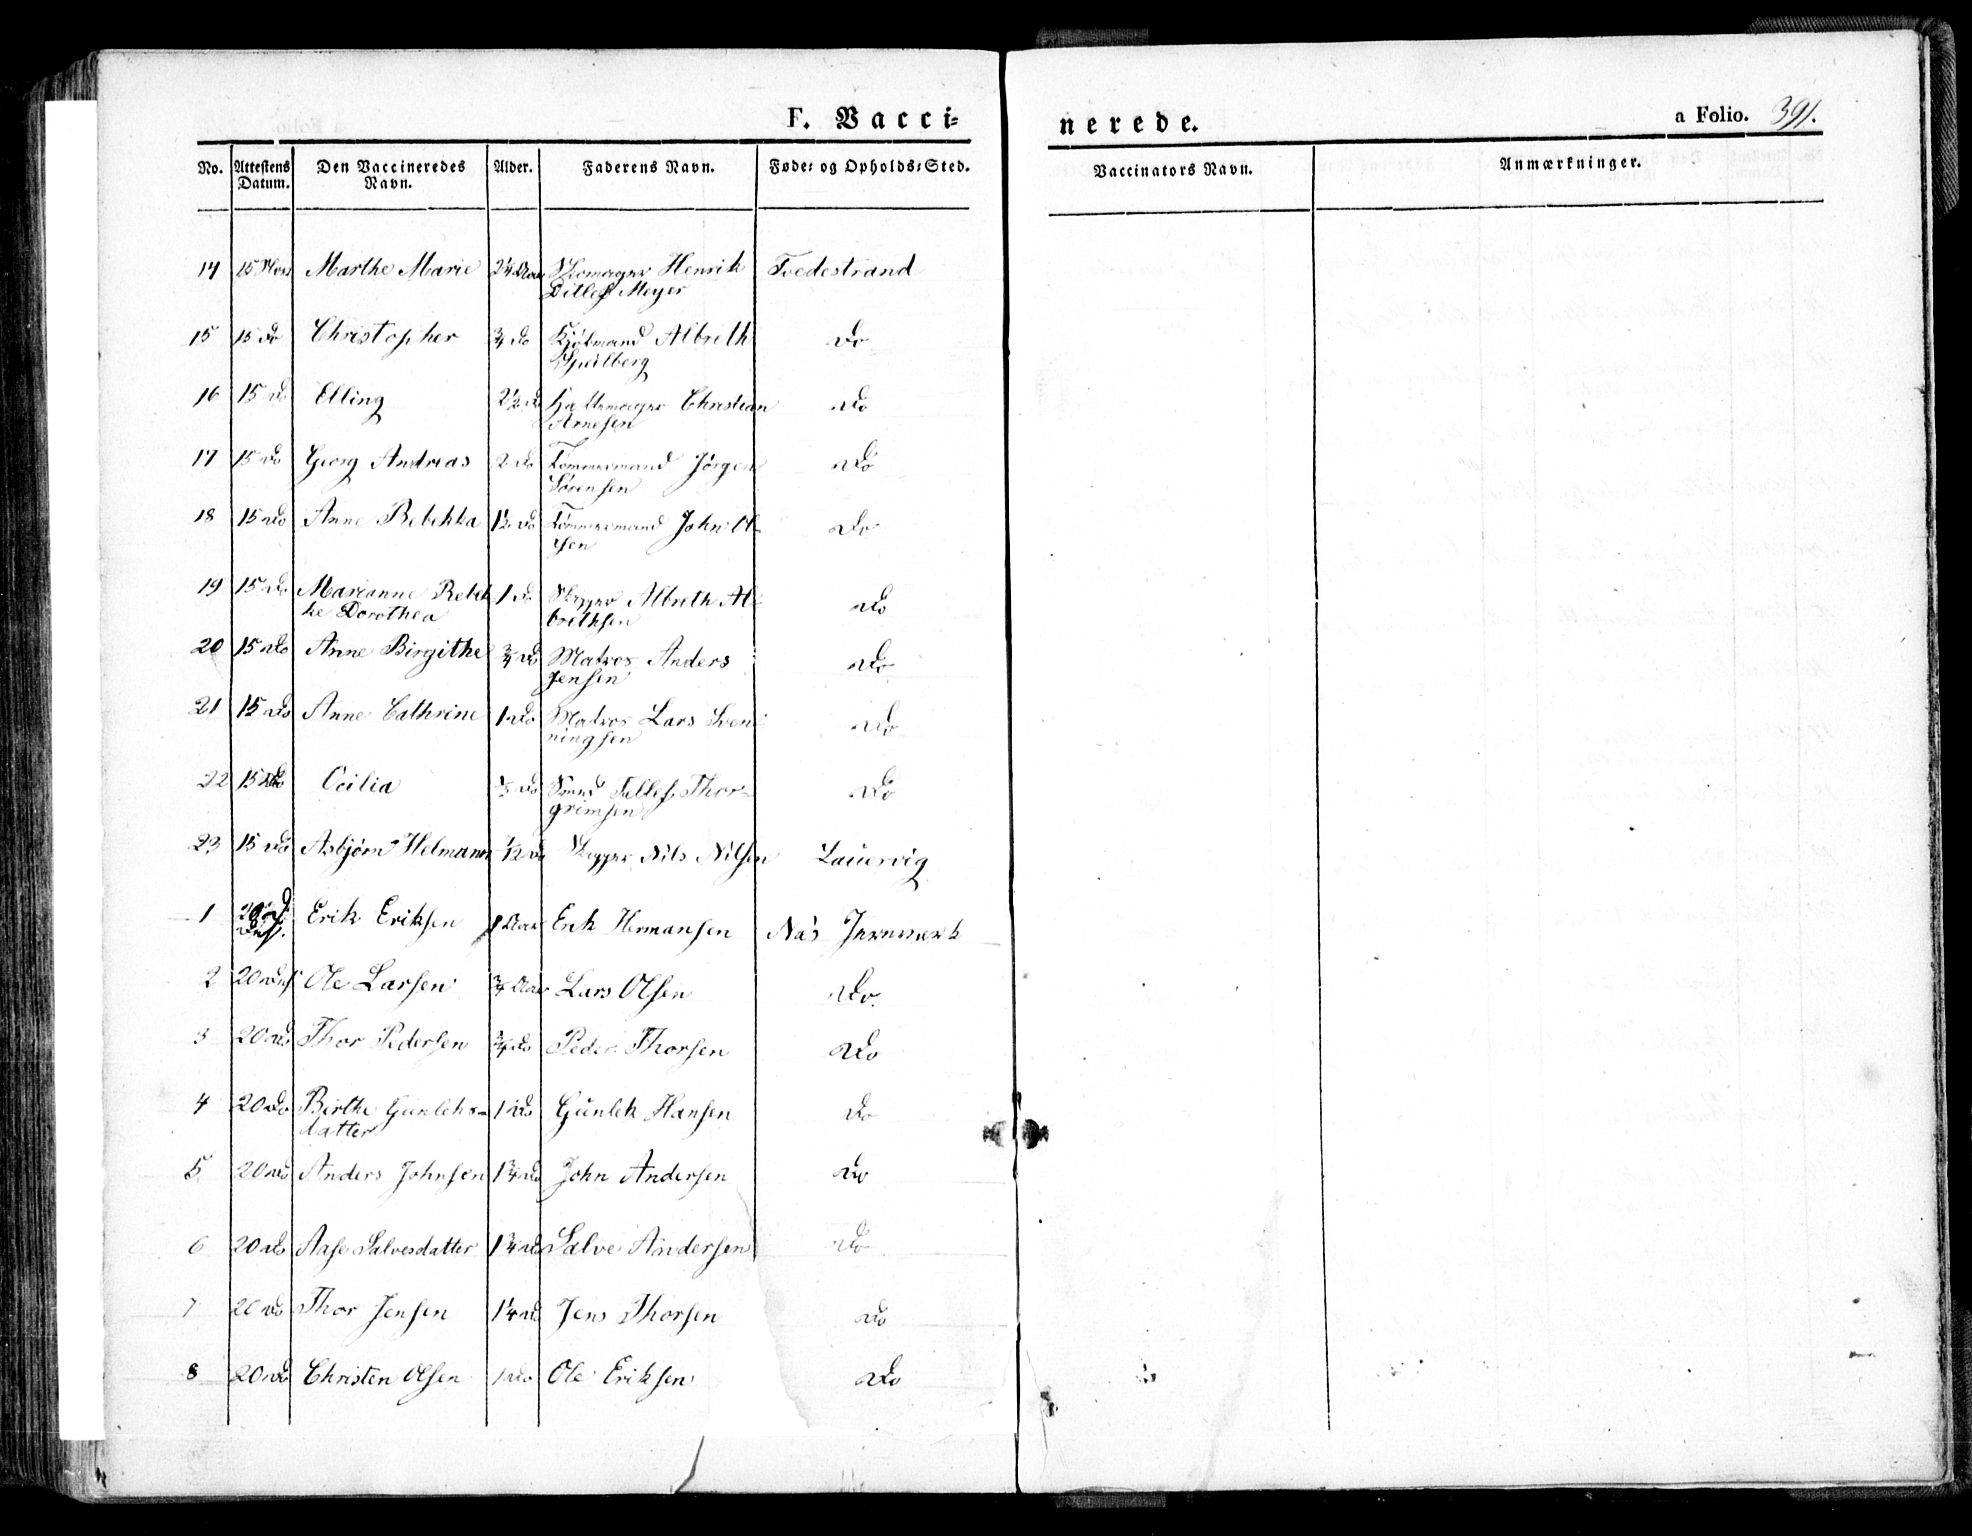 F. Vacci=
nerede.
a Folio. 391.
No. Attestens Datum. Den Vaccineredes Navn. Alder. Faderens Navn. Føde= og Opholds=Sted. Vaccinators Navn. Anmærkninger.
14 15 Marthe Marie 2¼ Aar Skomager Henrik Tvedestrand
Ditlef Meyer
15 15 Do Christopher ¾ Do Kjøbmand Albreth Do
Speilberg
16 15 Do Elling 2½ Do Hattemager Christian Do
Arnesen
17 15 Do Georg Andreas 2 Do Tømmermand Jörgen Do
Sörensen
18 15 Do Anne Rebekka 1½ Do Tømmermand John Ol= Do
sen
19 15 Do Marianne Rebek 1 Do Skipper Albreth Al= Do
ke Dorothea brethsen
20 15 Do Anne Birgithe ¾ Do Matros Anders Do
Jensen
21 15 Do Anne Cathrine 1 Do Matros Lars Sven= Do
ningsen
22 15 Do Cecilia Do Smed Tellef Thor= Do
grimsen
23 15 Do Asbjørn Helmann Skipper Nils Nilsen Lauervig
1 20 Erik Eriksen 1 Aar Erik Hermansen Näs Jernværk
2 20 Ole Larsen ¾ Aar Lars Olsen Do.
3 20 Do Thor Pedersen ¾ Do Peder Thorsen Do
4 20 Do Birthe Gunleks= 1 Do Gunlek Hansen Do
datter
5 20 Do Anders Johnsen 1¾ Do John Andersen Do
6 20 Do Aase Salvesdatter 1¾ Do Salve Andersen Do
7 20 Do Thor Jensen 1¼ Do Jens Thorsen Do
8 20 Do Christen Olsen 1 Do Ole Eriksen Do